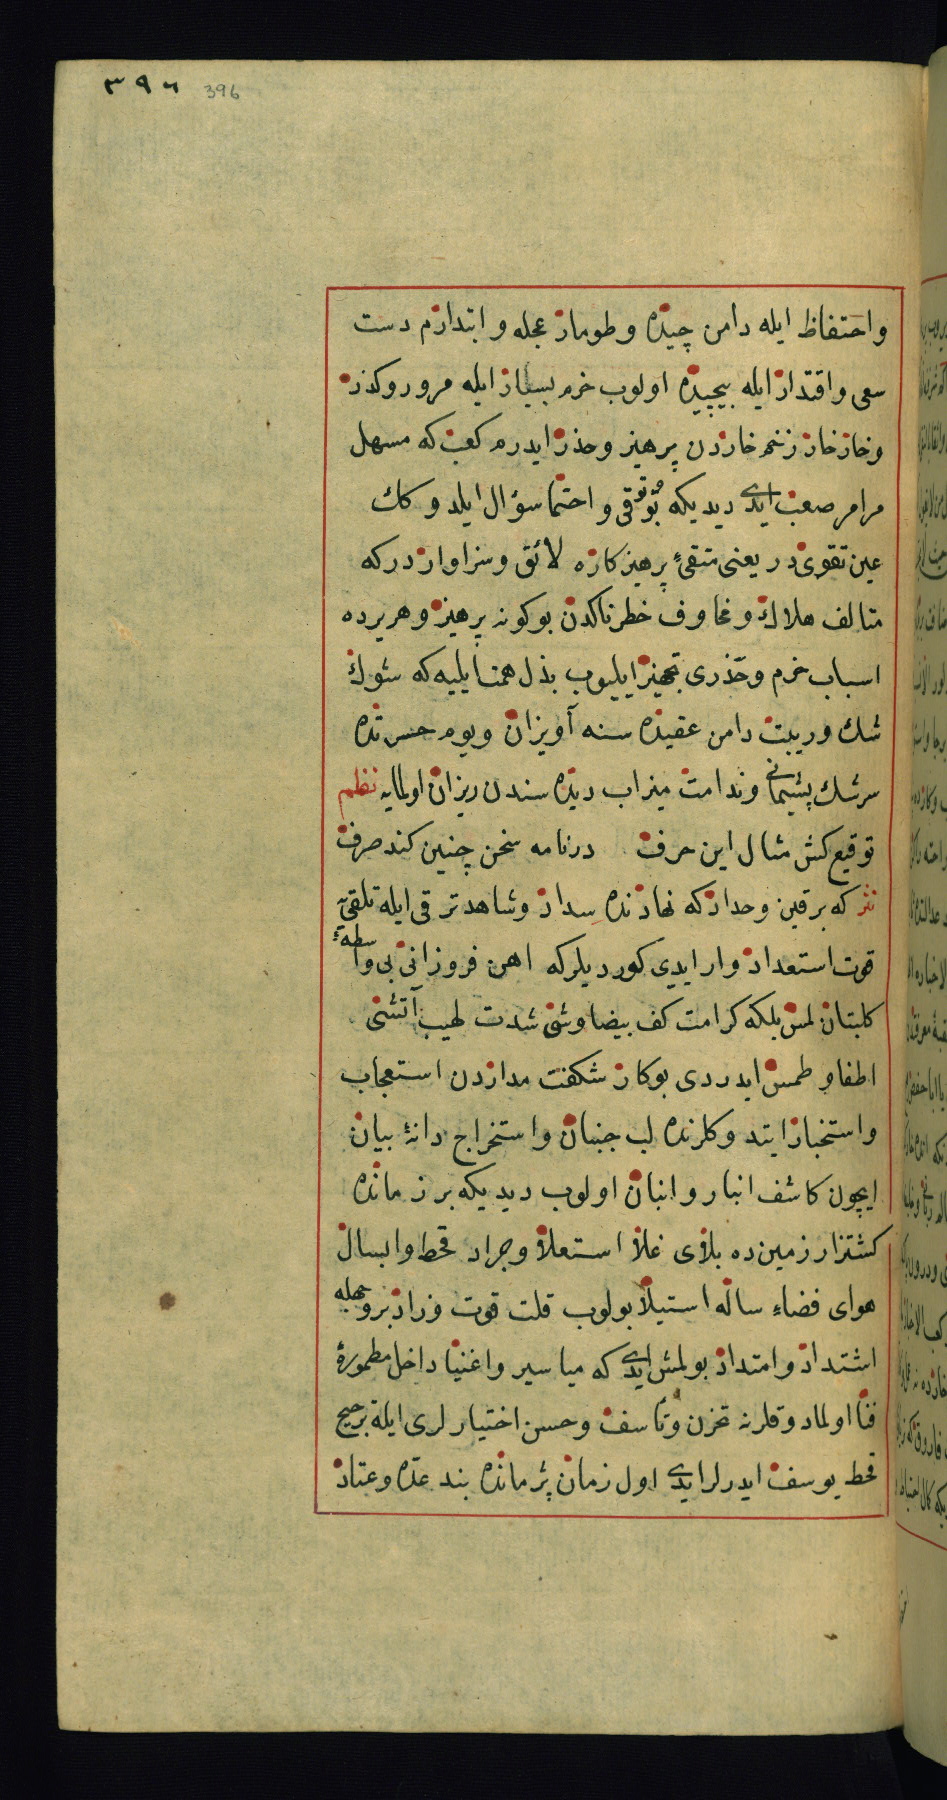 ٣٩٦ 396
واحتفاظ ايله دامن چيده وطومار عجله وابتدارم دست
سعى واقتدار ايله پيچيده اولوب خرم بسيار ايله مرور وكذر
وخار خار زخم خاردن پرهيز وحذر ايدرم كعب كه مسهل
مرامر صعب ايدى ديديكه بو توقى واحتما سؤال ايلدوكك
عين تقوى در يعنى متقىء پرهيزكاره لائق وسزاوار در كه
متالف هلاك ومخاوف خطرناكدن بوكونه پرهيز وهر يرده
اسباب خرم وحذرى تجهيز ايليوب بذل همت ايليه كه شوك
شك وريبت دامن عقيده سنه آويزان ويوم حسرتده
سرشك پشيمانى وندامت ميزاب ديده سندن ريزان اولمايه نظم
توقيع كش مثال اين حرف درنامه سخن چنين كند صرف
نثر كه برقين وحداد كه نهادنده سداد وشاهد ترقى ايله تلقى يه
قوت استعداد وار ايدى كورديلر كه اهن فروزانى بى واسطهء
كلبتان لمس بلكه كرامت كف بيضا وشى شدت لهيب آتشنى
اطفا وطمس ايدردى بوكار شكفت مداردن استعجاب
واستخبار ايتدوكلرنده لب جنبان واستخراج دانهٔ بيان
ايچون كاشف انبار وانبان اولوب ديديكه بر زمانده
كشتزار زمين ده بلاى غلا استعلا وجراد قحط وابسال
هواى فضاء ساله استيلا بولوب قلت قوت وزاد بر وجهله
اشتداد وامتداد بولمش ايدى كه مياسير واغنيا داخل مطمورهٔ
فنا اولمادوقلرنه تحزن وتأسف وحسن اختيارلرى ايله ترجيح
قحط يوسف ايدرلر ايدى اول زمان پژمانده بنده عده وعتاد